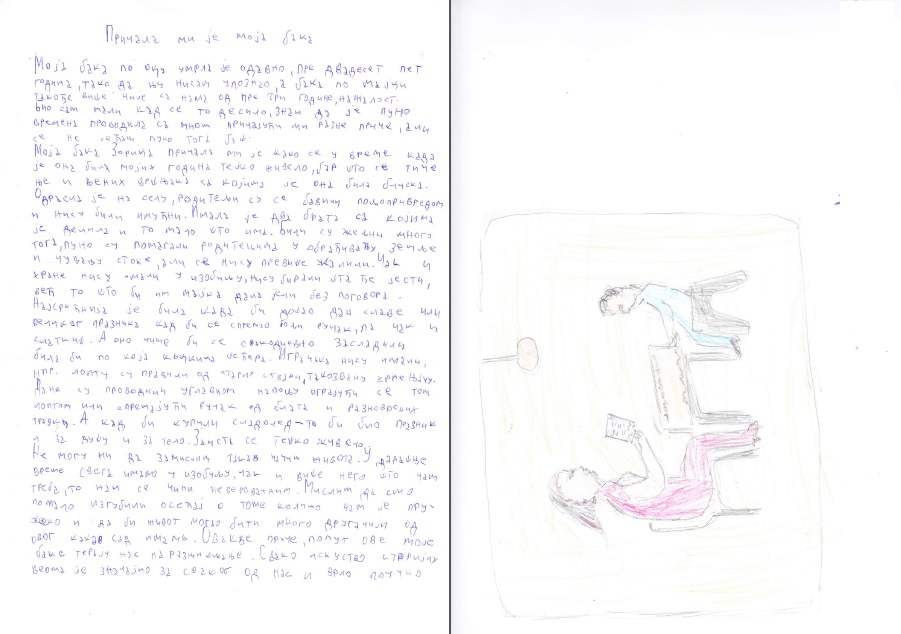 Причала ми је моја бака
Моја бака по оцу умрла је одавно, пре двадесет пет
година, тако да њу нисам упознао, а бака по мајци
такође више није са нама од пре три године, нажалост.
Био сам мали кад се то десило, знам да је пуно
времена проводила са мном причајући ми разне приче, али
се не сећам пуно тога баш
Моја бака Зорица причала ми је како се у време када
је она била мојих година тешко живело, бар што се тиче
ње и њених вршњака са којима је она била блиска.
Одрасла је на селу, родитељи су се бавили пољопривредом
и нису били имућни. Имала је два брата са којима
је делила и то мало што има. Били су жељни много
тога, пуно су помагали родитељима у обрађивању земље
и чувању стоке, али се нису превише жалили. Чак и
хране нису имали у изобиљу, нису бирали шта ће јести,
већ то што би им мајка дала јели без поговора.
Најсрећнија је била када би дошао дан славе или
великог празника кад би се спремао бољи ручак, па чак и
слаткиш. А оно чиме би се свакодневно засладили
била би по која кашика шећера. Играчака нису имали,
нпр. лопту су правили од старих ствари, такозвану крпењачу.
Дане су проводили углавном напољу играјући се том
лоптом или спремајући ручак од блата и разноврсних
травки. А кад би купили сладолед-то би био празник
и за душу и за тело. Заиста се тешко живело.
Не могу ни да замислим такав начин живота. У данашње
време свега имамо у изобиљу, чак и више него што нам
треба, то нам се чини невероватним. Мислим да смо
помало изгубили осећај о томе колико нам је пру-
жено и да би живот могао бити много другачији од
овог какав сад имамо. Овакве приче, попут ове моје
баке терају нас на размишљање. Свако искуство старијих
веома је значајно за сваког од нас и врло поучно